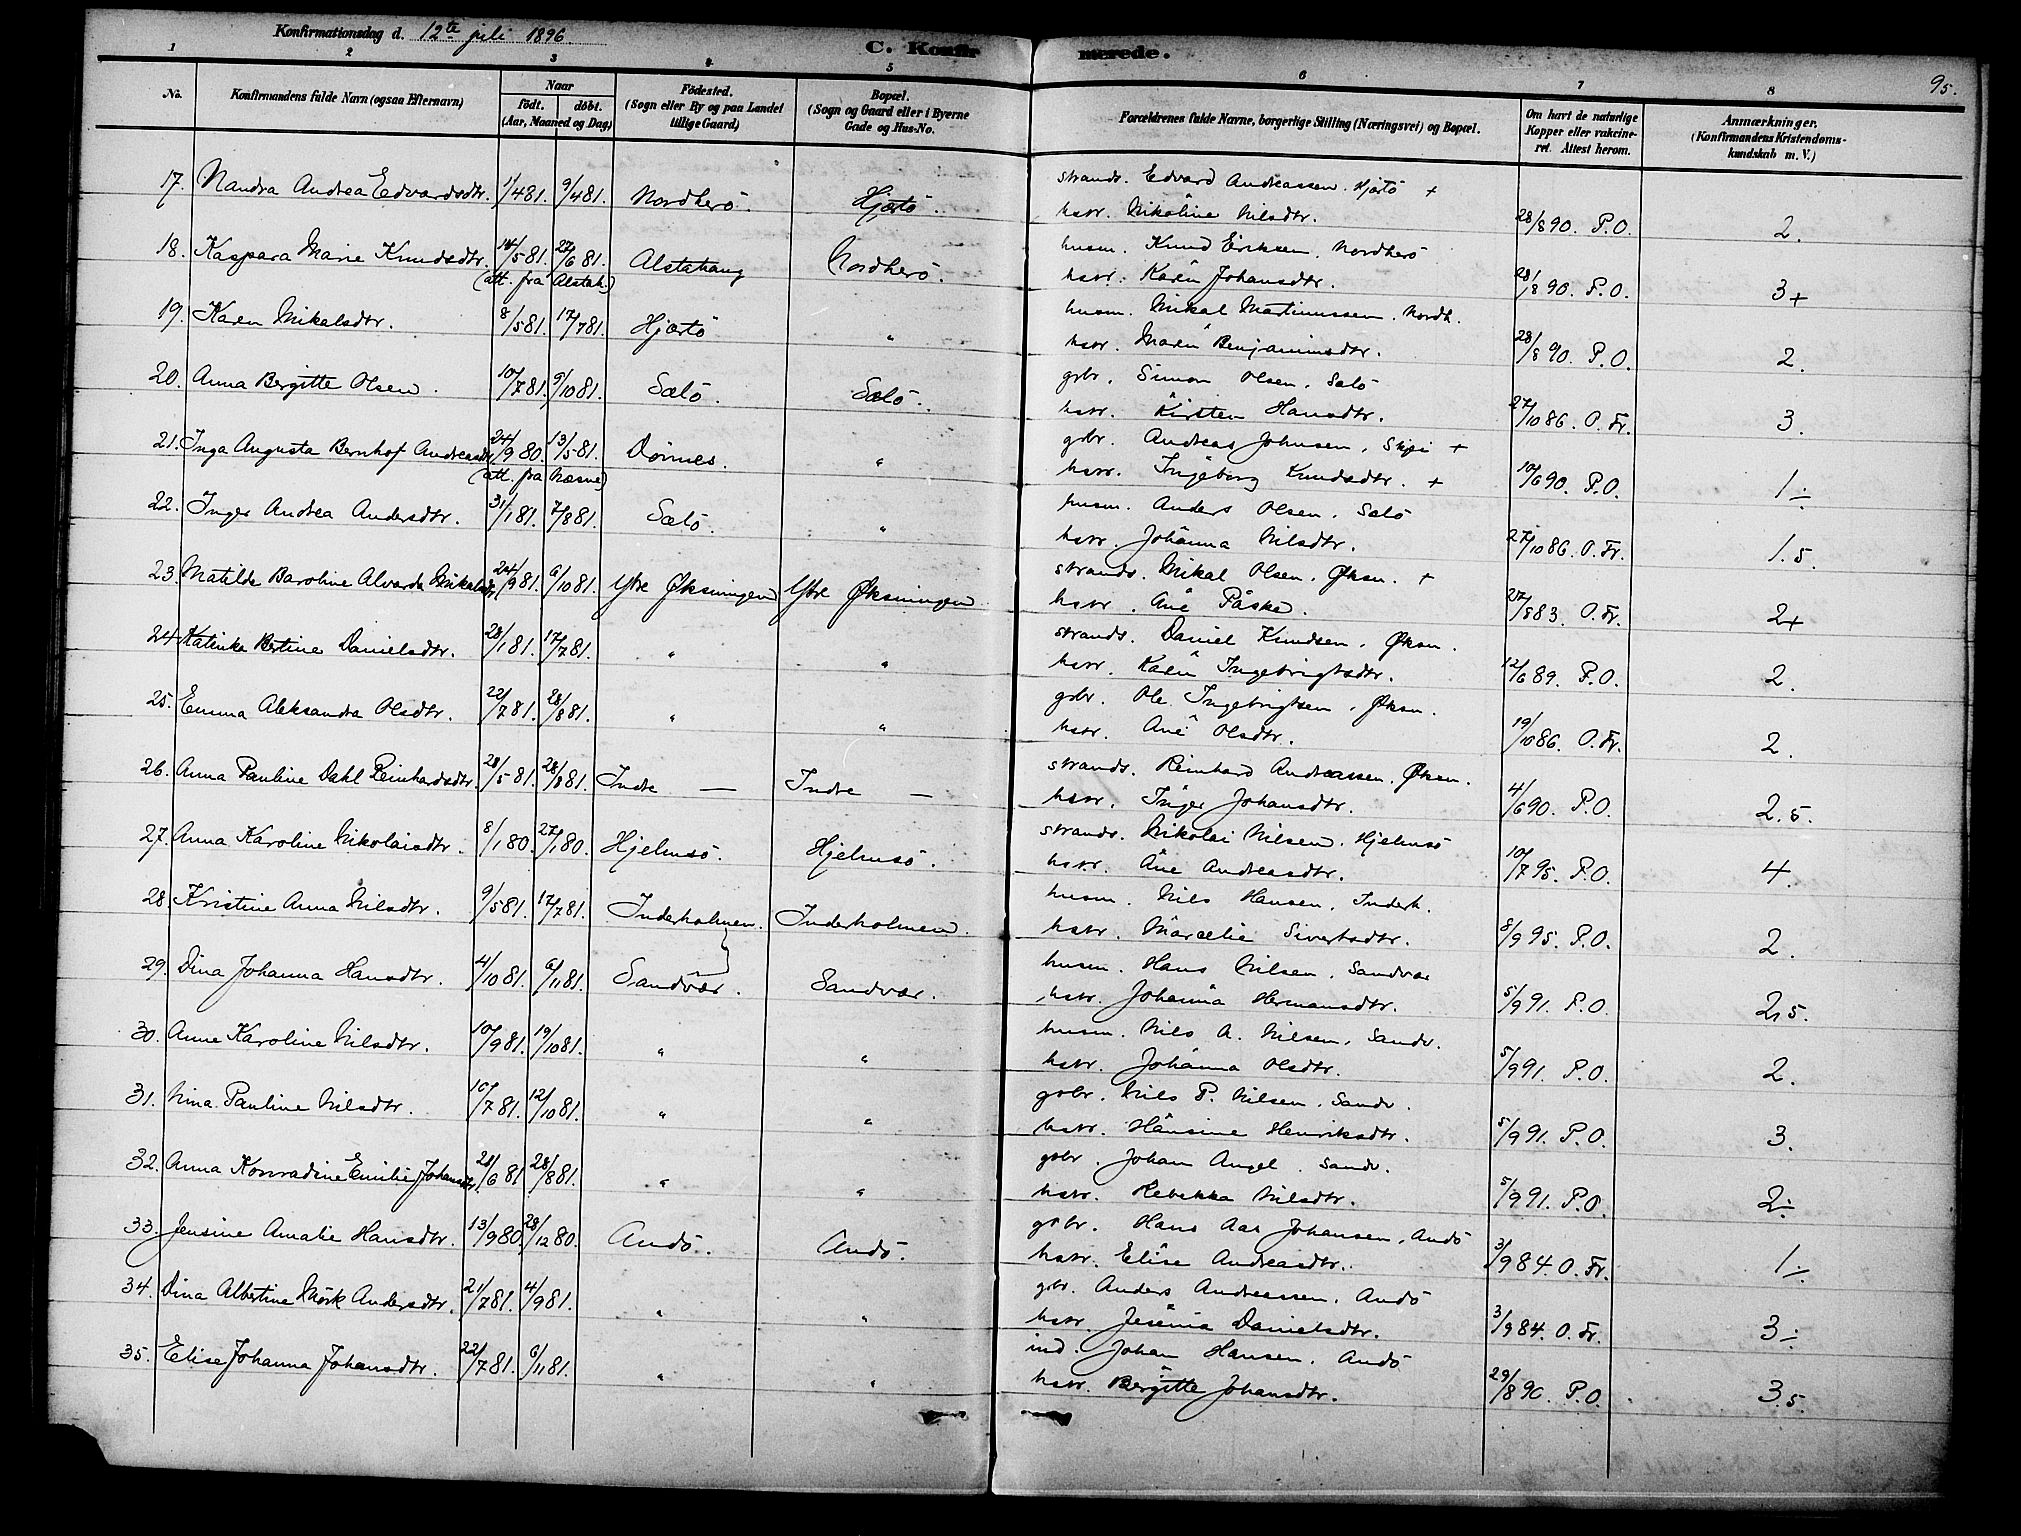 Konfirmationsdag d. 12te juli 1896.
C. Konfirmerede.
95.
1 2 3 4 5 6 7 8
No. Konfirmandens fulde Navn (ogsaa Efternavn) Naar født. døbt. (Aar, Maaned og Dag) Födested. (Sogn eller By og paa Landet tillige Gaard) Bopæl. (Sogn og Gaard eller i Byerne Gade og Hus-No. Forældrenes fulde Navne, borgerlige Stilling (Næringsvei) og Bopæl. Om havt de naturlige Kopper eller vakcineret. Attest herom. Anmærkninger. (Konfirmandens Kristendomskundskab m. V.)
17. Nandra Andrea Edvardsdtr. 1/4 81. 9/4 81. Nordherö. Hjørtö. strands. Edvard Andreassen. Hjørtö +
hstr. Nikoline Nilsdtr. 28/8 90. P.O. 2.
18. Kaspara Marie Knudsdtr. 14/5 81. 27/6 81. Alstahaug Nordherö. husm. Knud Eriksen, Nordherö
(att. fra Alstah.) hstr. Karen Johansdtr. 28/8 90. P.O. 3+
19. Karen Mikalsdtr. 8/5 81. 17/7 81. Hjørtö " husm. Mikal Martinussen, Nordh.
hstr. Maren Benjaminsdtr. 28/8 90. P.O. 2.
20. Anna Bergitte Olsen. 10/7 81. 9/10 81. Sælö. Sælö. gbr. Simon Olsen, Sælö
hstr. Kirsten Hansdtr. 27/10 86. O. Fr. 3.
21. Inga Augusta Bernhof Andreasdtr. 24/9 80. 13/5 81. Dönnes. " gbr. Andreas Johnsen, +
(att. fra Næsne) hstr. Ingeborg Knudsdtr. + 10/6 90. P.O. 1÷
22. Inger Andrea Andersdtr. 31/1 81. 7/8 81. Sælö. " husm. Anders Olsen. Sælö
hstr. Johanna Nilsdtr. 27/10 86. O. Fr. 1.5.
23. Matilde Baroline Alvarda Mikalsdtr. 24/9 81. 6/10 81. Ytre Øksningen Ytre Øksningen strands. Mikal Olsen, Øksn. +
hstr. Ane Påske. 27/8 83. O. Fr. 2+
24. Katinka Bertine Danielsdtr. 28/1 81. 17/7 81. " " strands. Daniel Knudsen, Øksn.
hstr. Karen Ingebrigtsdtr. 12/6 89. P.O. 2.
25. Emma Aleksandra Olsdtr. 22/7 81. 28/8 81. " " gbr. Ole Ingebrigtsen, Øksn.
hstr. Ane Olsdtr. 19/10 86. O. Fr. 2.
26. Anna Pauline Dahl Reinhardsdtr. 28/5 81. 28/8 81. Indre — Indre — strands. Reinhard Andreassen, Øksn.
hstr. Inger Johansdtr. 4/6 90. P.O. 2.5.
27. Anna Karoline Nikolaisdtr. 8/1 80. 27/1 80. Hjelmsö. Hjelmsö. strands. Nikolai Nilsen, Hjelmsö
hstr. Ane Andreasdtr. 10/7 95. P.O. 4.
28. Kristine Anna Nilsdtr. 9/5 81. 17/7 81. Inderholmen. Inderholmen. husm. Nils Hansen, Inderh.
hstr. Marcelie Sivertsdtr. 8/9 95. P.O. 2.
29. Dina Johanna Hansdtr. 4/10 81. 6/11 81. Sandvær. Sandvær. husm. Hans Nilsen, Sandvær
hstr. Johanna Hermansdtr. 5/9 91. P.O. 2,5.
30. Anne Karoline Nilsdtr. 10/9 81. 19/10 81. " " husm. Nils A. Nilsen, Sandv.
hstr. Johanna Olsdtr. 5/9 91. P.O. 2.
31. Nina Pauline Nilsdtr. 10/7 81. 12/10 81. " " gbr. Nils P. Nilsen, Sandv.
hstr. Hansine Henriksdtr. 5/9 91. P.O. 3.
32. Anna Konradine Emilie Johansdtr. 28/6 81 28/8 81. " " gbr. Johan Angel. Sandv.
hstr. Rebekka Nilsdtr. 5/9 91. P.O. 2÷
33. Jensine Amalie Hansdtr. 13/9 80. 28/12 80. Andö. Andö. gbr. Hans Aas Johansen, Andö
hstr. Elise Andreasdtr. 3/9 84. O. Fr. 1÷
34. Dina Albertine Mörk Andersdtr. 21/7 81. 4/9 81. " " gbr. Anders Andreassen, Andö
hstr. Jesenia Danielsdtr. 3/9 84. O. Fr. 3÷
35. Elise Johanna Johansdtr. 22/7 81. 6/11 81. " " ind. Johan Hansen, Andö
hstr. Bergitte Johansdtr. 29/8 90. P.O. 3.5.